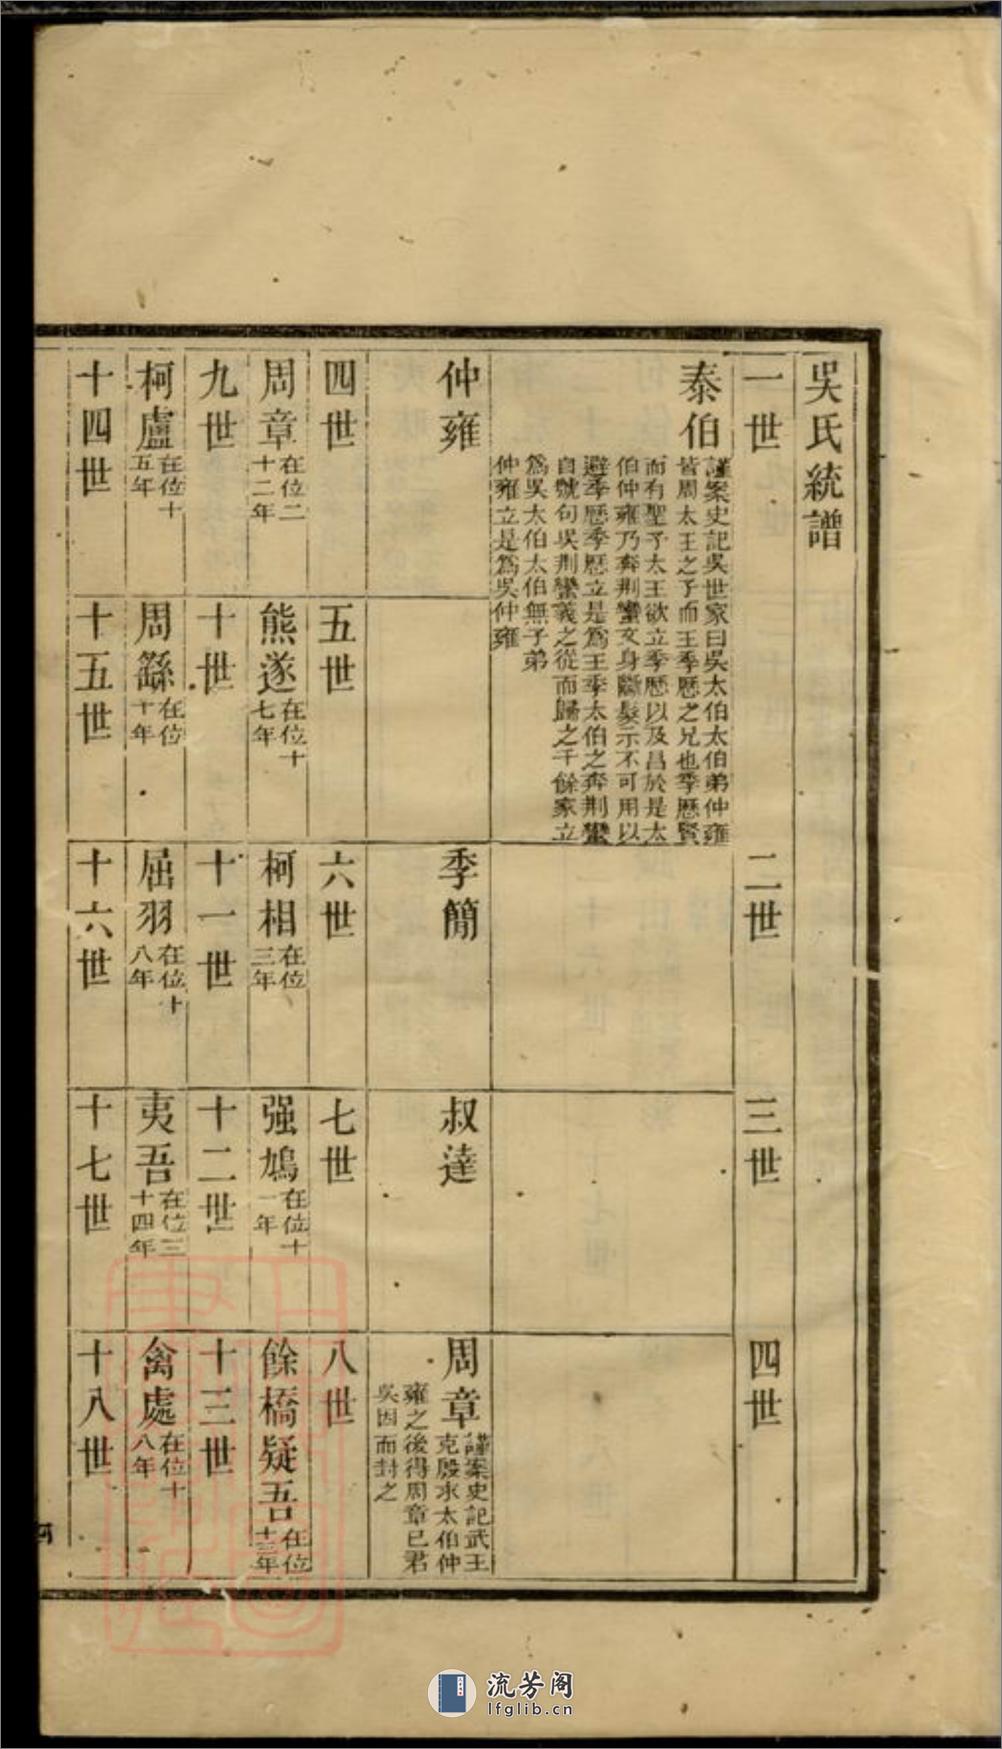 吳氏統譜
一世
二世
三世
四世
泰伯
謹案史記吳世家曰吳太伯太伯弟仲雍
皆周太王之子而王季歷之兄也季歷賢
而有聖子太王欲立季歷以及昌於是太
伯仲雍乃奔荆蠻文身斷髮示不可用以
避季歷季歷立是爲王季太伯之奔荆蠻
自號句吳荆蠻義之從而歸之千餘家立
爲吳太伯太伯無子弟
仲雍立是爲吳仲雍
仲雍
季簡
叔達
周章
謹案史記武王
克殷求太伯仲
雍之後得周章已君
吳因而封之
四世
五世
六世
七世
八世
周章
在位二
十二年
熊遂
在位十
七年
柯相
在位
三年
强鳩
在位十
一年
餘橋疑吾
在位
十三年
九世
十世
十一世
十二世
十三世
柯盧
在位十
五年
周繇
在位
十年
屈羽
在位十
八年
夷吾
在位三
十四年
禽處
在位十
八年
十四世
十五世
十六世
十七世
十八世
流芳阁
lfglib.cn